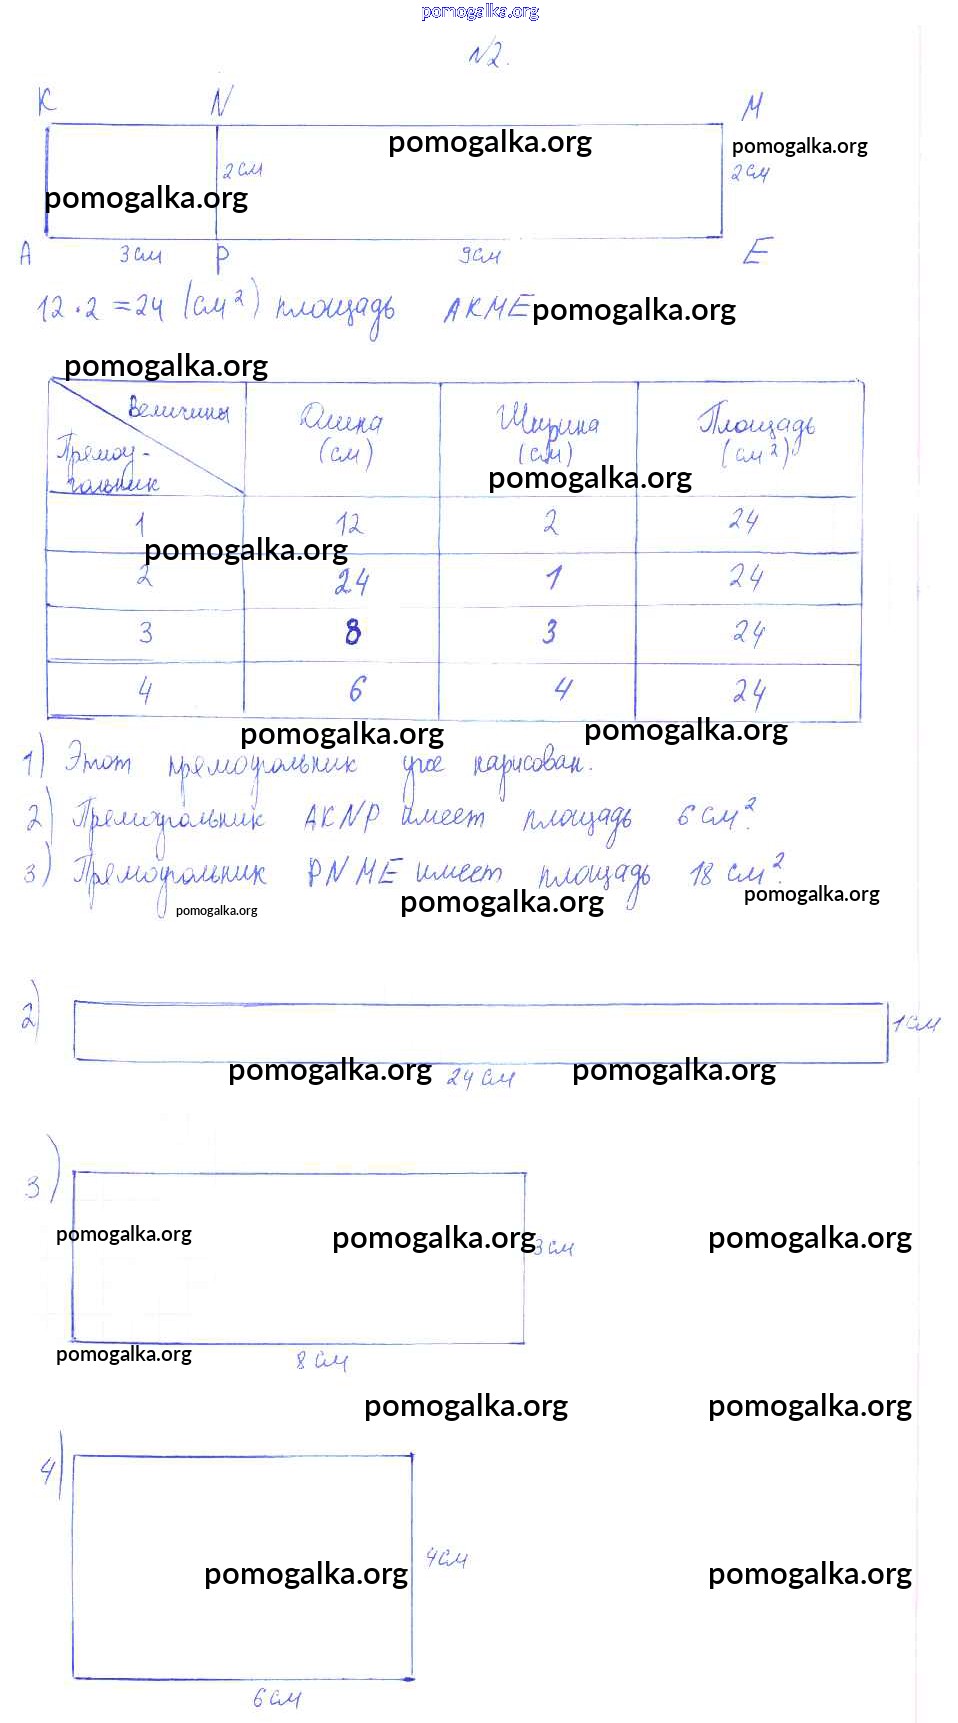 pomogalka.org
N2.
K N M
pomogalka.org
pomogalka.org
2см 2см
pomogalka.org
A 3см P 9см E
12 · 2 = 24 (см²) площадь AKME
pomogalka.org
pomogalka.org
Величины
Прямоу-
гольник
Длина
(см)
Ширина
(см)
Площадь
(см²)
pomogalka.org
1 12 2 24
pomogalka.org
2 24 1 24
3 8 3 24
4 6 4 24
pomogalka.org
pomogalka.org
1) Этот прямоугольник уже нарисован.
2) Прямоугольник AKNP имеет площадь 6 см².
3) Прямоугольник PNME имеет площадь 18 см².
pomogalka.org
pomogalka.org
pomogalka.org
2)
1см
pomogalka.org 24 см pomogalka.org
3)
pomogalka.org pomogalka.org 3 см pomogalka.org
pomogalka.org
8 см
pomogalka.org pomogalka.org
4)
4см
pomogalka.org pomogalka.org
6 см